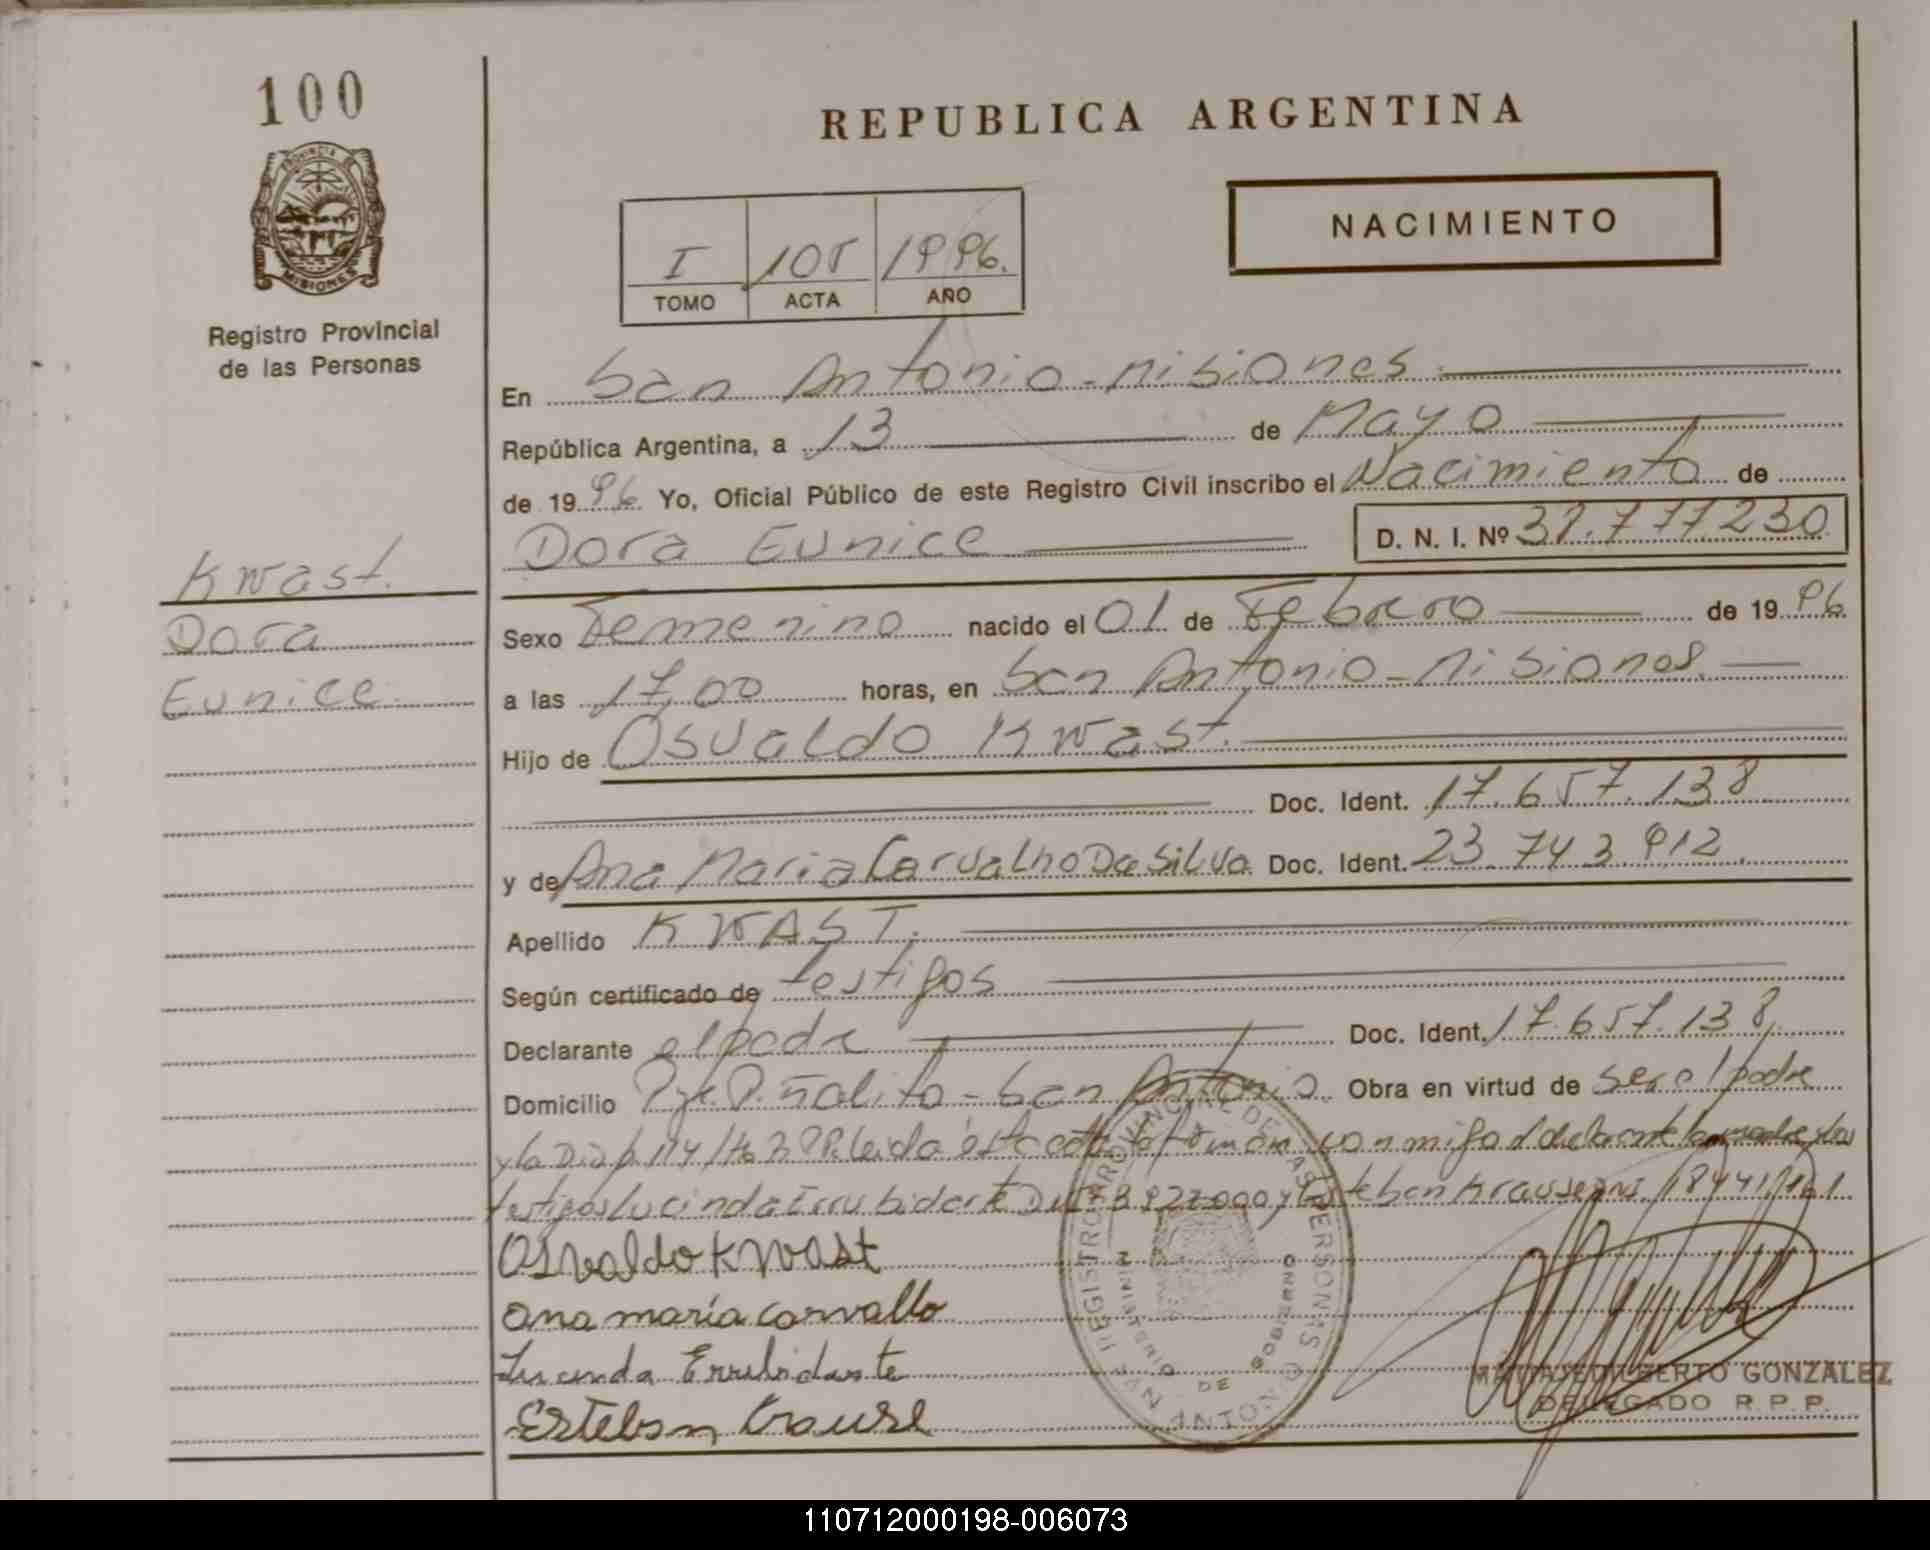 100
REPUBLICA ARGENTINA
NACIMIENTO
PROVINCIA DE
MISIONES
I 105 1996.
TOMO ACTA AÑO
Registro Provincial
de las Personas
En San Antonio - Misiones.
República Argentina, a 13 de Mayo
de 1996 Yo, Oficial Público de este Registro Civil inscribo el Nacimiento de
Dora Eunice D. N. I. Nº 37.777230
Kwast.
Dora
Eunice
Sexo Femenino nacido el 01 de Febrero de 1996
a las 17,00 horas, en San Antonio - Misiones.
Hijo de Osvaldo Kwast.
Doc. Ident. 17.657.138
y de Ana Maria Carvalho Da Silva Doc. Ident. 23.743.912.
Apellido KWAST.
Según certificado de testigos
Declarante el padre Doc. Ident. 17.657.138,
Domicilio Piñalito - San Antonio. Obra en virtud de ser el padre
y la Leida esta acta la firman conmigo el declarante la madre y los
testigos Lucinda Errubidarte y Esteban Krause
Osvaldo Kwast
Ana maría Carvallo
Lucinda Errubidarte
Esteban Krause
REGISTRO PROVINCIAL DE LAS PERSONAS
MINISTERIO DE GOBIERNO
SAN ANTONIO
GONZALEZ
DELEGADO R. P. P.
110712000198-006073